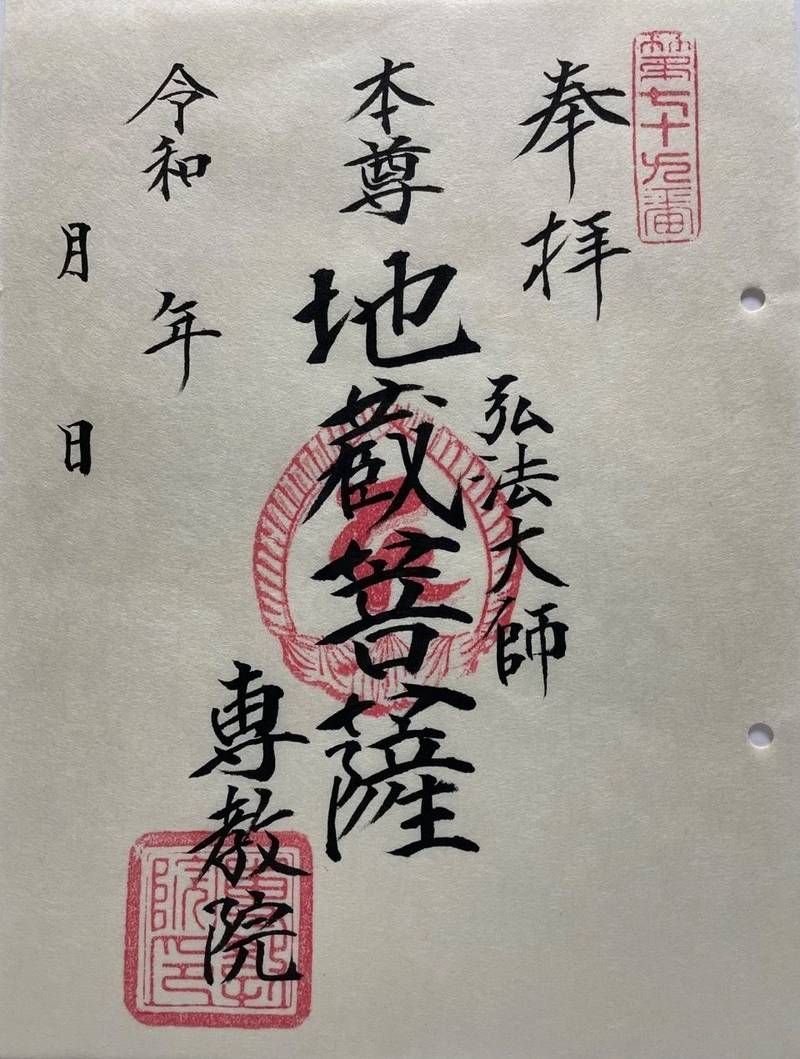 第七十九番
奉拝
弘法大師
本尊 地蔵菩薩
専教院
令和 年
月 日